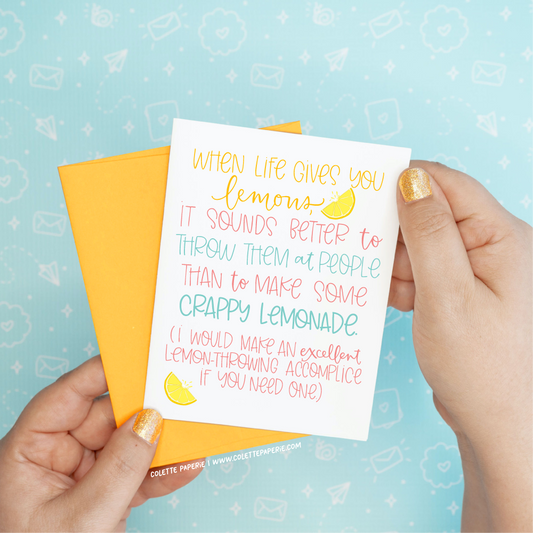 WHEN LIFE GIVES YOU
lemons,
IT SOUNDS BETTER to
THROW THEM at PEOPLE
THAN to MAKE SOME
CRAPPY LEMONADE.
(I WOULD MAKE AN excellent
LEMON-THROWING ACCOMPLICE
IF YOU NEED ONE)
COLETTE PAPERIE | WWW.COLETTEPAPERIE.COM